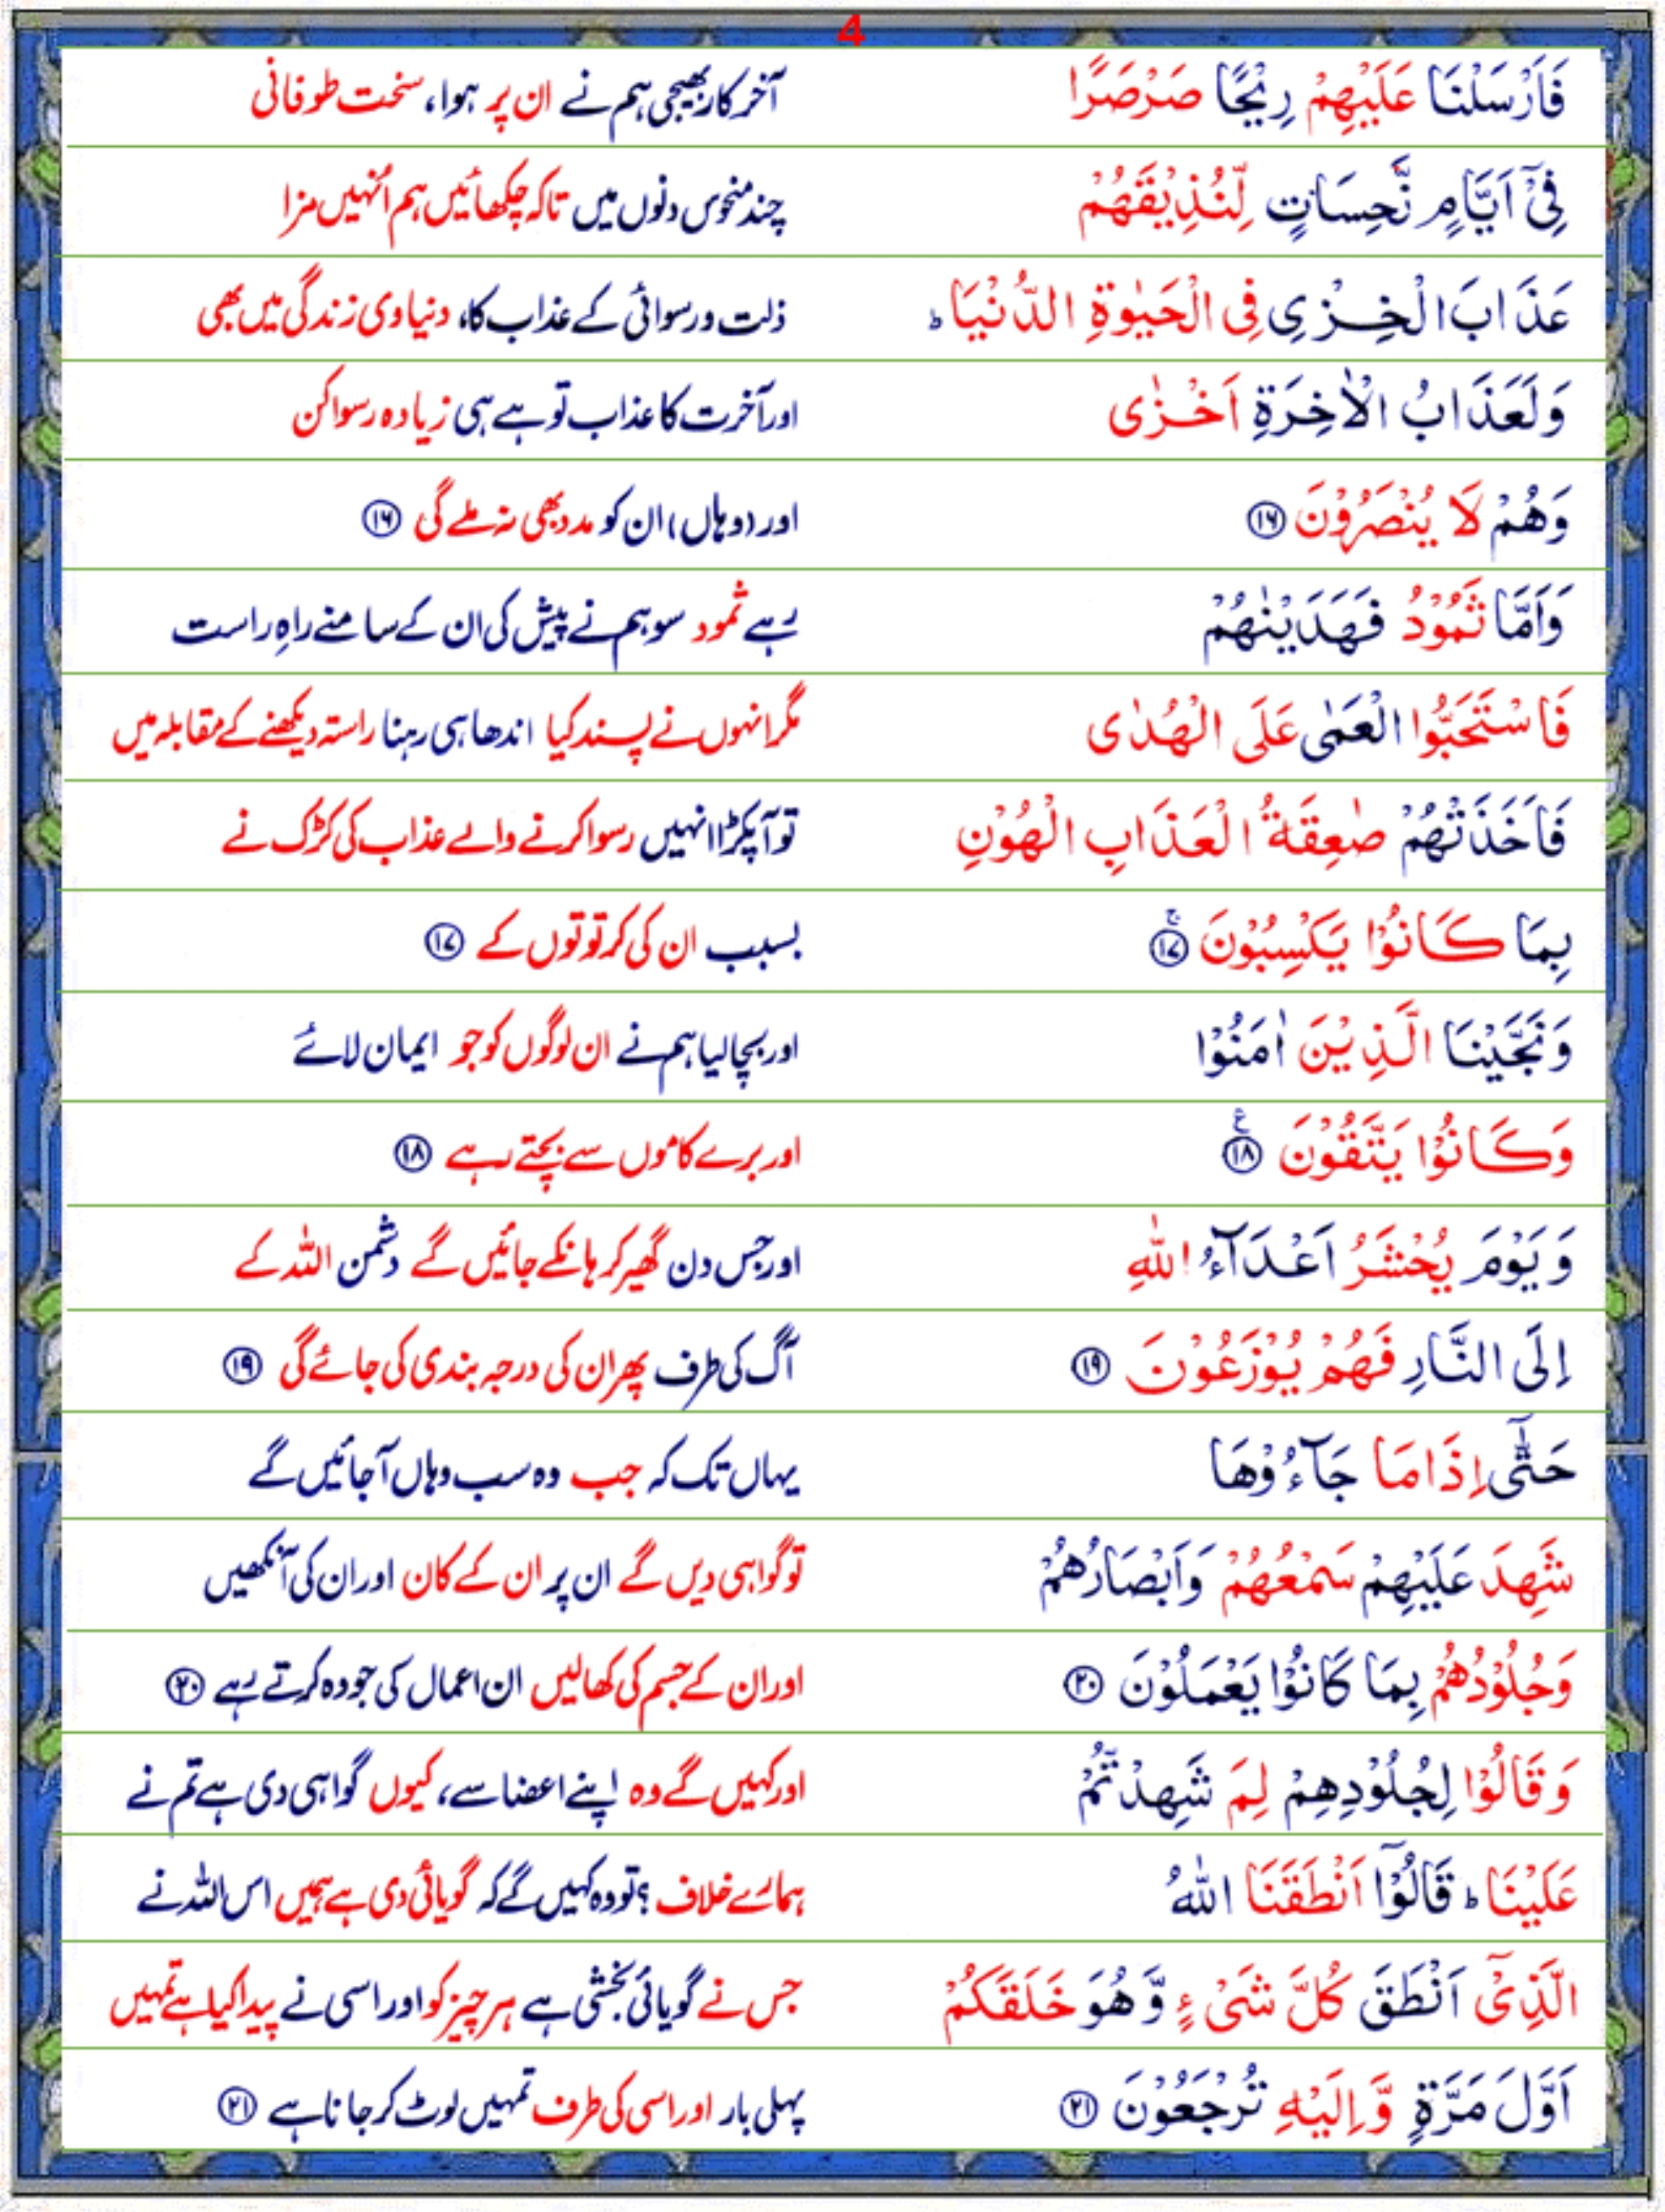 4
فَاَرْسَلْنَا عَلَيْهِمْ رِيْحًا صَرْصَرًا آخر کار بھیجی ہم نے ان پر ہوا، سخت طوفانی
فِيْٓ اَيَّامٍ نَّحِسَاتٍ لِّنُذِيْقَهُمْ چند منحوس دنوں میں تاکہ چکھائیں ہم اُنہیں مزا
عَذَابَ الْخِزْيِ فِي الْحَيٰوةِ الدُّنْيَا ؕ ذلت ورسوائی کے عذاب کا، دنیاوی زندگی میں بھی
وَلَعَذَابُ الْاٰخِرَةِ اَخْزٰى اور آخرت کا عذاب تو ہے ہی زیادہ رسوا کن
وَهُمْ لَا يُنْصَرُوْنَ ۱۶ اور (وہاں) ان کو مدد بھی نہ ملے گی ۱۶
وَاَمَّا ثَمُوْدُ فَهَدَيْنٰهُمْ رہے ثمود سو ہم نے پیش کی ان کے سامنے راہِ راست
فَاسْتَحَبُّوا الْعَمٰى عَلَى الْهُدٰى مگر انہوں نے پسند کیا اندھا ہی رہنا راستہ دیکھنے کے مقابلہ میں
فَاَخَذَتْهُمْ صٰعِقَةُ الْعَذَابِ الْهُوْنِ تو آپکڑا انہیں رسوا کرنے والے عذاب کی کڑک نے
بِمَا كَانُوْا يَكْسِبُوْنَ ۱۷ ۚ بسبب ان کی کرتوتوں کے ۱۷
وَنَجَّيْنَا الَّذِيْنَ اٰمَنُوْا اور بچالیا ہم نے ان لوگوں کو جو ایمان لائے
وَكَانُوْا يَتَّقُوْنَ ۱۸ ع اور برے کاموں سے بچتے رہے ۱۸
وَيَوْمَ يُحْشَرُ اَعْدَآءُ اللّٰهِ اور جس دن گھیر کر ہانکے جائیں گے دشمن اللہ کے
اِلَى النَّارِ فَهُمْ يُوْزَعُوْنَ ۱۹ آگ کی طرف پھر ان کی درجہ بندی کی جائے گی ۱۹
حَتّٰٓى اِذَا مَا جَآءُوْهَا یہاں تک کہ جب وہ سب وہاں آجائیں گے
شَهِدَ عَلَيْهِمْ سَمْعُهُمْ وَاَبْصَارُهُمْ تو گواہی دیں گے ان پر ان کے کان اور ان کی آنکھیں
وَجُلُوْدُهُمْ بِمَا كَانُوْا يَعْمَلُوْنَ ۲۰ اور ان کے جسم کی کھالیں ان اعمال کی جو وہ کرتے رہے ۲۰
وَقَالُوْا لِجُلُوْدِهِمْ لِمَ شَهِدْتُّمْ اور کہیں گے وہ اپنے اعضا سے، کیوں گواہی دی ہے تم نے
عَلَيْنَا ؕ قَالُوْٓا اَنْطَقَنَا اللّٰهُ ہمارے خلاف ؟ تو وہ کہیں گے کہ گویائی دی ہے ہمیں اس اللہ نے
الَّذِيْٓ اَنْطَقَ كُلَّ شَيْءٍ وَّهُوَ خَلَقَكُمْ جس نے گویائی بخشی ہے ہر چیز کو اور اسی نے پیدا کیا ہے تمہیں
اَوَّلَ مَرَّةٍ وَّاِلَيْهِ تُرْجَعُوْنَ ۲۱ پہلی بار اور اسی کی طرف تمہیں لوٹ کر جانا ہے ۲۱